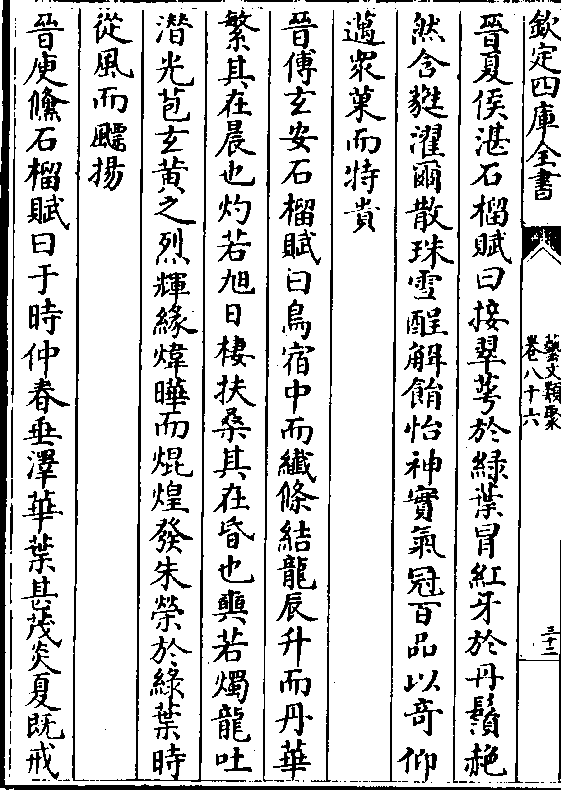 欽定四庫全書
藝文類聚
卷八十六
三十二
晉夏侯湛石榴賦曰接翠萼於綠葉冒紅牙於丹鬚赩
然含蕤濯爾散珠雪酲解餶怡神實氣冠百品以奇仰
邁衆菓而特貴
晉傅玄安石榴賦曰鳥宿中而纖條結龍辰升而丹華
繁其在晨也灼若旭日棲扶桑其在昏也奭若燭龍吐
潜光苞玄黄之烈輝緣煒曄而焜煌發朱榮於綠葉時
從風而飄揚
晉庾儵石榴賦曰于時仲春垂澤華葉甚茂炎夏既戒